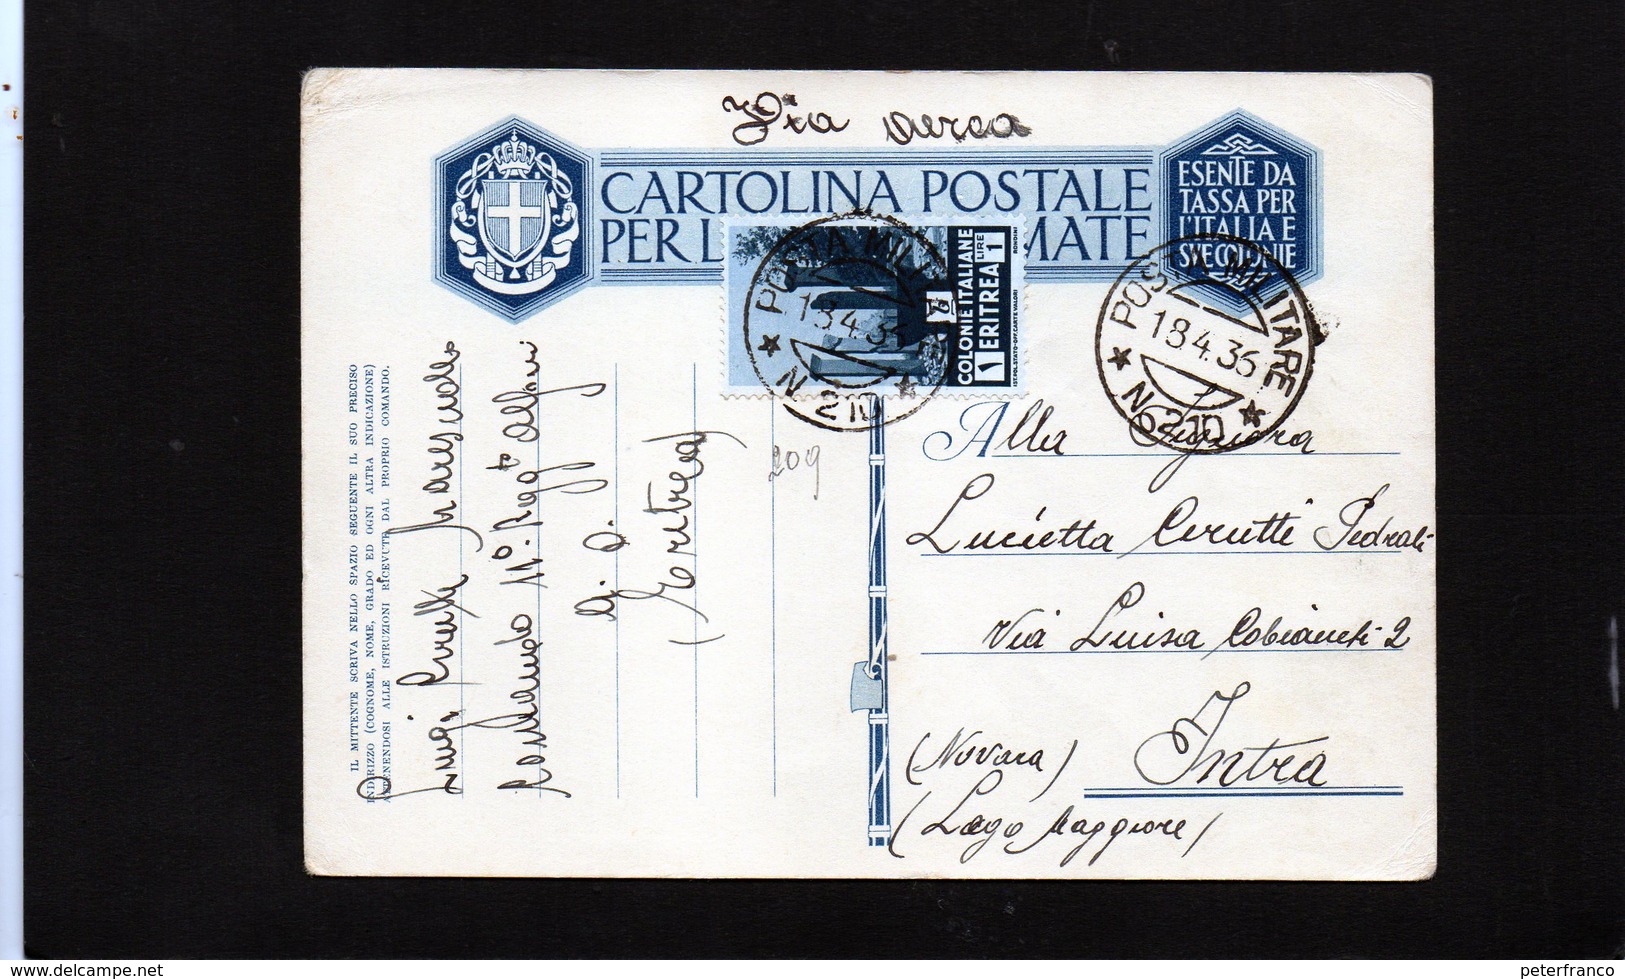 Via aerea
CARTOLINA POSTALE
PER L MATE
ESENTE DA
TASSA PER
L'ITALIA E
SVE COLONIE
COLONIE ITALIANE
1 ERITREA 1
LIRE
RONDINI
IST.POL.STATO-OFF.CARTE VALORI
POSTA MILITARE
18.4.36
N. 210
POSTA MILITARE
18.4.36
N. 210
IL MITTENTE SCRIVA NELLO SPAZIO SEGUENTE IL SUO PRECISO
INDIRIZZO (COGNOME, NOME, GRADO ED OGNI ALTRA INDICAZIONE)
ATTENENDOSI ALLE ISTRUZIONI RICEVUTE DAL PROPRIO COMANDO.
Luigi
Comando 11º Regg.to Alpini
A. O.
(Eritrea)
209
Alla Signora
Lucietta Cerutti Pedrali
Via Luisa Cobianchi-2
Intra
(Novara)
(Lago Maggiore)
www.delcampe.net
peterfranco